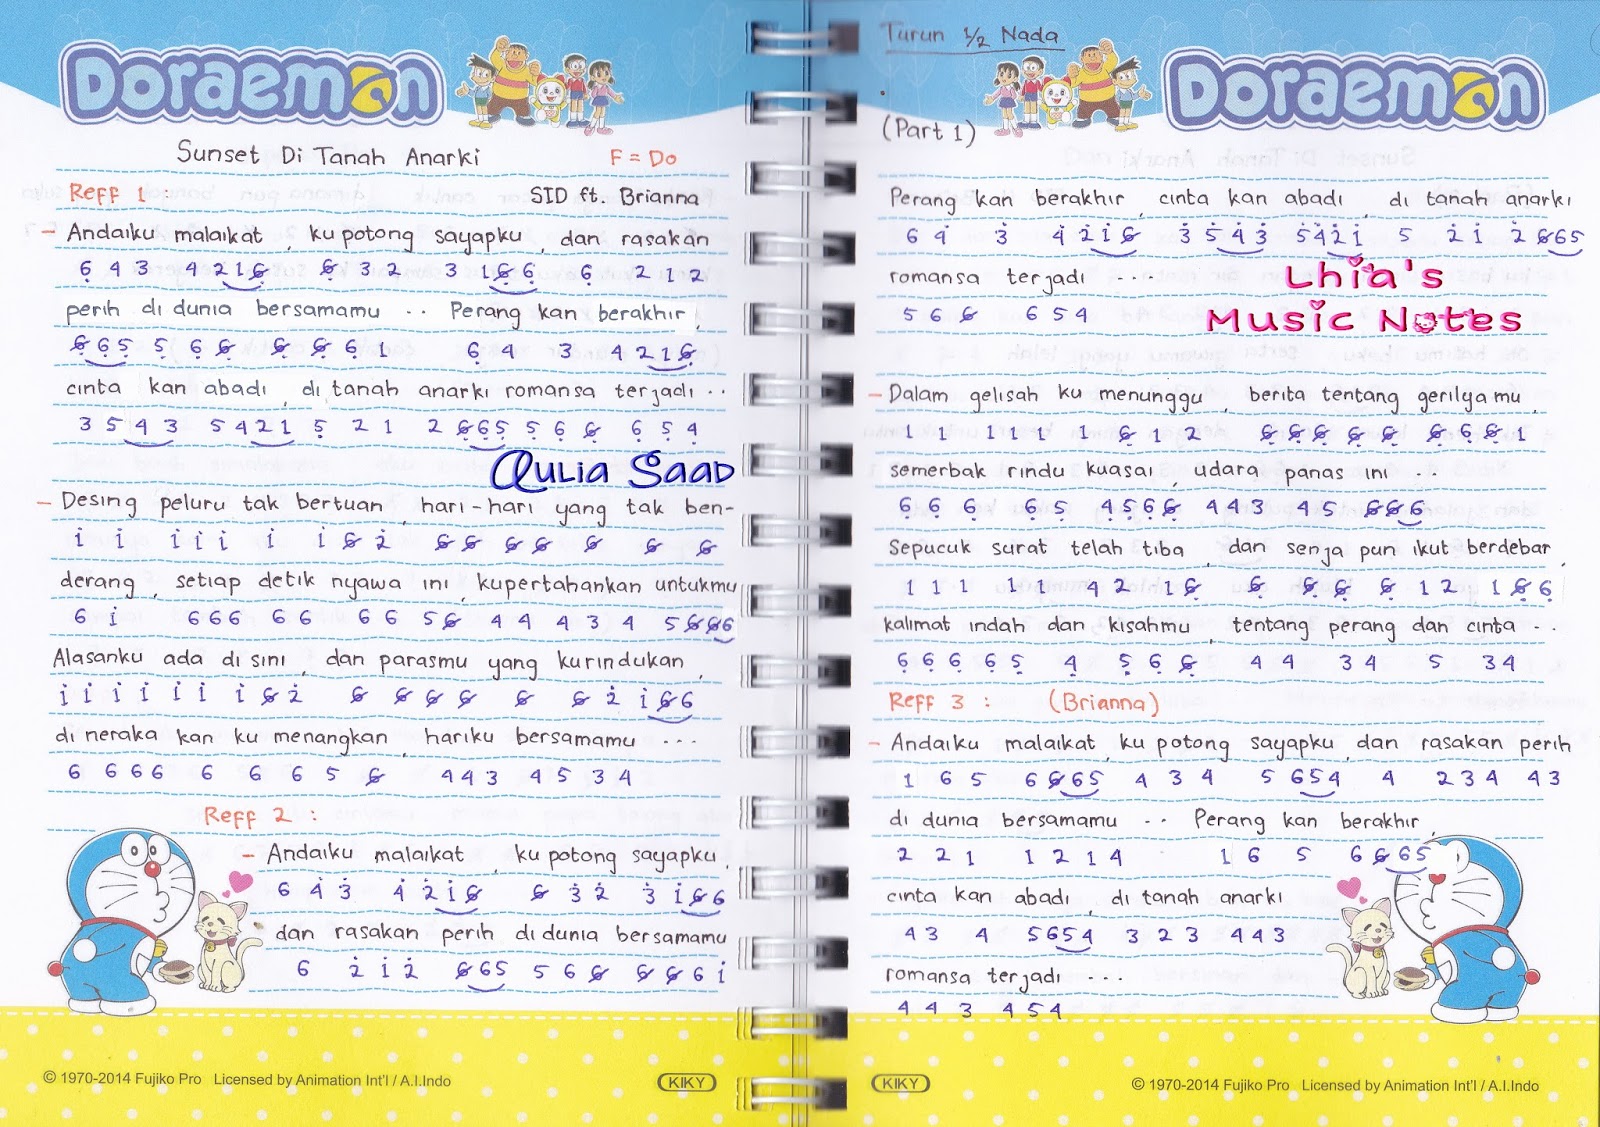 Doraemon
Sunset Di Tanah Anarki F = Do
Reff 1 : SID ft. Brianna
– Andaiku malaikat , ku potong sayapku , dan rasakan
6 4 3 4 2 1 6 6 3 2 3 1 6 6 6 2 1 2
perih di dunia bersamamu .. Perang kan berakhir ,
6 6 5 5 6 6 6 6 6 1 6 4 3 4 2 1 6
cinta kan abadi , di tanah anarki romansa terjadi ..
3 5 4 3 5 4 2 1 5 2 1 2 6 6 5 5 6 6 6 5 4
Aulia Saad
– Desing peluru tak bertuan , hari-hari yang tak ben-
1 1 1 1 1 1 1 6 2 6 6 6 6 6 6 6
derang , setiap detik nyawa ini , kupertahankan untukmu
6 1 6 6 6 6 6 6 6 5 6 4 4 4 3 4 5 6 6 6
Alasanku ada di sini , dan parasmu yang kurindukan ,
1 1 1 1 1 1 1 6 2 6 6 6 6 6 6 2 1 6 6
di neraka kan ku menangkan , hariku bersamamu ...
6 6 6 6 6 6 6 5 6 4 4 3 4 5 3 4
Reff 2 :
– Andaiku malaikat , ku potong sayapku ,
6 4 3 4 2 1 6 6 3 2 3 1 6 6
dan rasakan perih di dunia bersamamu
6 2 1 2 6 6 5 5 6 6 6 6 6 1
© 1970-2014 Fujiko Pro Licensed by Animation Int'l / A.I.Indo
KIKY
Turun 1/2 Nada
Doraemon
(Part 1)
Perang kan berakhir , cinta kan abadi , di tanah anarki
6 4 3 4 2 1 6 3 5 4 3 5 4 2 1 5 2 1 2 6 6 5
romansa terjadi ....
5 6 6 6 5 4
Lhia's
Music Notes
– Dalam gelisah ku menunggu , berita tentang gerilyamu ,
1 1 1 1 1 1 6 1 2 6 6 6 6 6 6 6 6 1
semerbak rindu kuasai , udara panas ini ...
6 6 6 6 5 4 5 6 6 4 4 3 4 5 6 6 6
Sepucuk surat telah tiba , dan senja pun ikut berdebar
1 1 1 1 1 4 2 1 6 6 6 6 6 1 2 1 6 6
kalimat indah dan kisahmu , tentang perang dan cinta ..
6 6 6 6 5 4 5 6 6 4 4 3 4 5 3 4
Reff 3 : (Brianna)
– Andaiku malaikat , ku potong sayapku , dan rasakan perih
1 6 5 6 6 6 5 4 3 4 5 6 5 4 4 2 3 4 4 3
di dunia bersamamu .. Perang kan berakhir ,
2 2 1 1 2 1 4 1 6 5 6 6 6 5
cinta kan abadi , di tanah anarki
4 3 4 5 6 5 4 3 2 3 4 4 3
romansa terjadi ....
4 4 3 4 5 4
KIKY
© 1970-2014 Fujiko Pro Licensed by Animation Int'l / A.I.Indo